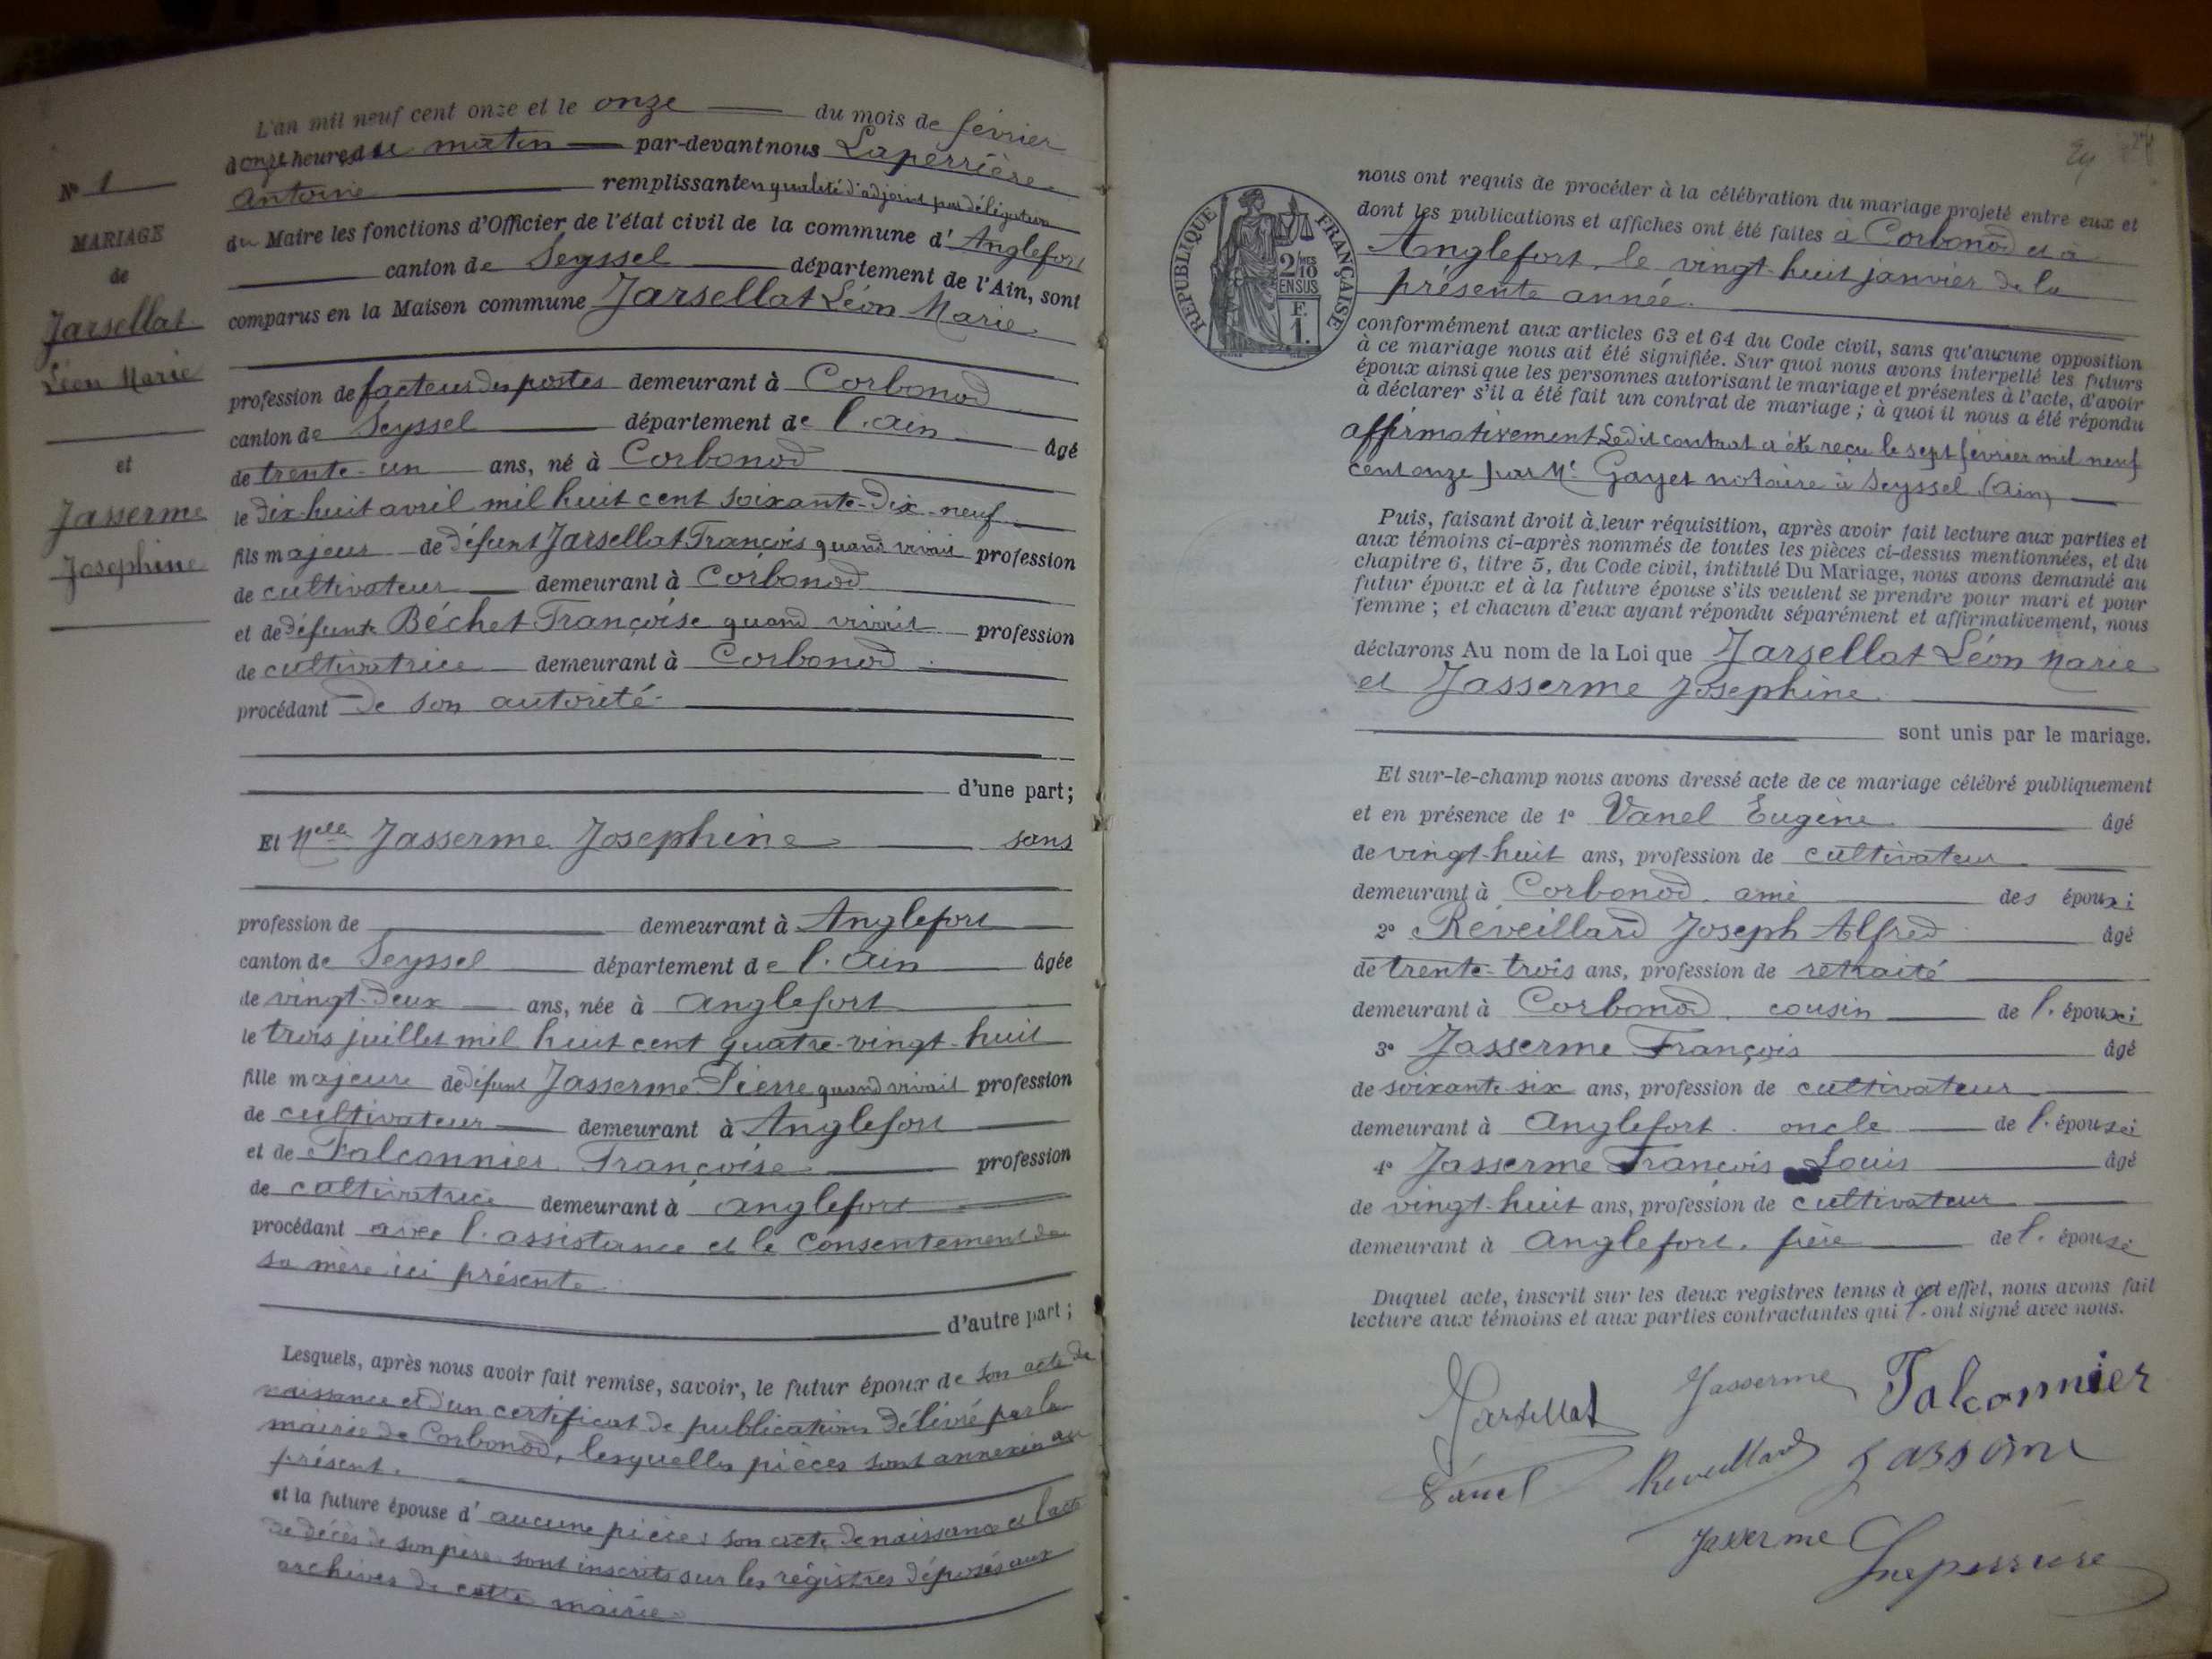 N° 1
MARIAGE
de
Jarsellat
Léon Marie
et
Jasserme
Josephine
L'an mil neuf cent onze et le onze du mois de février
à onze heures du matin par-devant nous Laperrière
Antoine remplissant en qualité d'adjoint par délégation
du Maire les fonctions d'Officier de l'état civil de la commune d'Anglefort
canton de Seyssel département de l'Ain, sont
comparus en la Maison commune Jarsellat Léon Marie
profession de facteur des postes demeurant à Corbonod
canton de Seyssel département de l'Ain âgé
de trente-un ans, né à Corbonod
le dix-huit avril mil huit cent soixante-dix-neuf
fils majeur de défunt Jarsellat François quand vivait profession
de cultivateur demeurant à Corbonod
et de défunte Béchet Françoise quand vivait profession
de cultivatrice demeurant à Corbonod
procédant de son autorité
d'une part;
Et Melle Jasserme Josephine sans
profession de demeurant à Anglefort
canton de Seyssel département de l'Ain âgée
de vingt-deux ans, née à Anglefort
le trois juillet mil huit cent quatre-vingt-huit
fille majeure de défunt Jasserme Pierre quand vivait profession
de cultivateur demeurant à Anglefort
et de Falconnier Françoise profession
de cultivatrice demeurant à Anglefort
procédant avec l'assistance et le consentement de
sa mère ici présente
d'autre part;
Lesquels, après nous avoir fait remise, savoir, le futur époux de son acte de
naissance et d'un certificat de publications délivré par la
mairie de Corbonod, lesquelles pièces sont annexées au
présent.
et la future épouse d'aucune pièce: son acte de naissance et l'acte
de décès de son père sont inscrits sur les régistres déposés aux
archives de cette mairie
REPUBLIQUE FRANÇAISE
2/10 EN SUS
F. 1.
nous ont requis de procéder à la célébration du mariage projeté entre eux et
dont les publications et affiches ont été faites à Corbonod et à
Anglefort, le vingt-huit janvier de la
présente année.
conformément aux articles 63 et 64 du Code civil, sans qu'aucune opposition
à ce mariage nous ait été signifiée. Sur quoi nous avons interpellé les futurs
époux ainsi que les personnes autorisant le mariage et présentes à l'acte, d'avoir
à déclarer s'il a été fait un contrat de mariage; à quoi il nous a été répondu
affirmativement Ledit contrat a été reçu le sept février mil neuf
cent onze par Me Gayet notaire à Seyssel (Ain)
Puis, faisant droit à leur réquisition, après avoir fait lecture aux parties et
aux témoins ci-après nommés de toutes les pièces ci-dessus mentionnées, et du
chapitre 6, titre 5, du Code civil, intitulé Du Mariage, nous avons demandé au
futur époux et à la future épouse s'ils veulent se prendre pour mari et pour
femme; et chacun d'eux ayant répondu séparément et affirmativement, nous
déclarons Au nom de la Loi que Jarsellat Léon Marie
et Jasserme Josephine
sont unis par le mariage.
Et sur-le-champ nous avons dressé acte de ce mariage célébré publiquement
et en présence de 1° Vanel Eugène âgé
de vingt-huit ans, profession de cultivateur
demeurant à Corbonod, ami des époux;
2° Réveillard Joseph Alfred âgé
de trente-trois ans, profession de retraité
demeurant à Corbonod, cousin de l'époux;
3° Jasserme François âgé
de soixante-six ans, profession de cultivateur
demeurant à Anglefort. oncle de l'épouse;
4° Jasserme François Louis âgé
de vingt-huit ans, profession de cultivateur
demeurant à Anglefort. frère de l'épouse
Duquel acte, inscrit sur les deux registres tenus à cet effet, nous avons fait
lecture aux témoins et aux parties contractantes qui l'ont signé avec nous.
Jarsellat Jasserme Falconnier
Vanel Reveillard Jasserme
Jasserme Laperrière